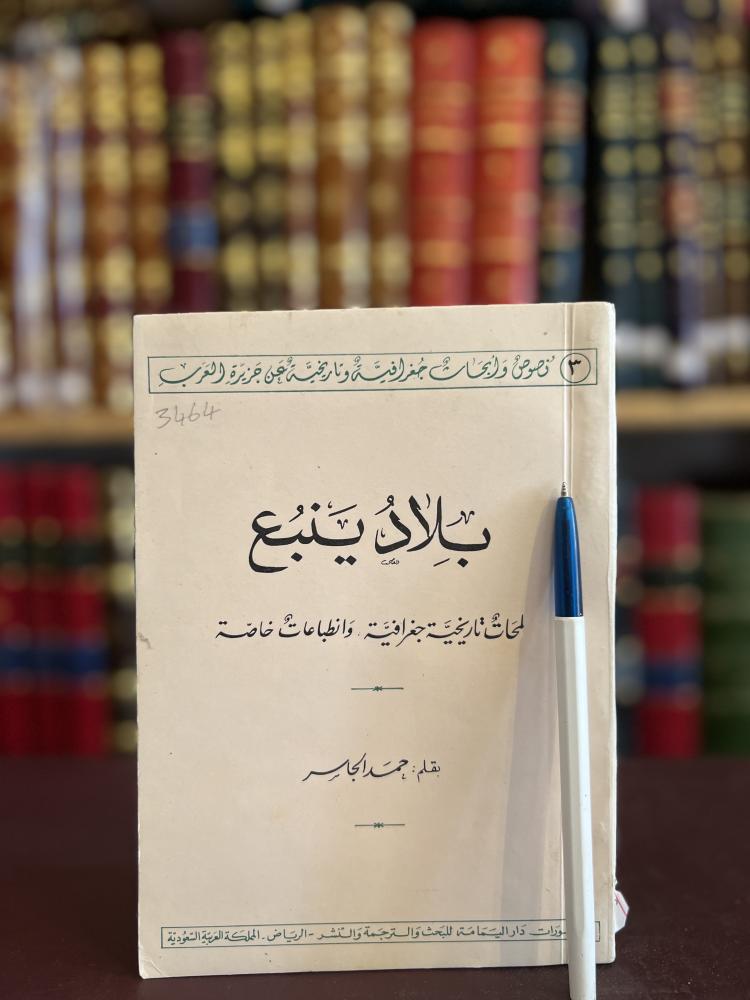 ٣ نصوصٌ وَأبحَاثٌ جُغرافيَّةٌ وتاريخيَّةٌ عَن جَزيرَةِ العَرَبِ
3464
بِلَادُ يَنبُع
لمحَاتٌ تاريخيَّة جغرافيَّة، وَانطباعَاتٌ خاصّة
بقلم: حمَد الجاسر
دَار اليَمامَة للبَحث والترجمَة والنشر - الريَاض - المملكة العَربيَّة السّعوديّة